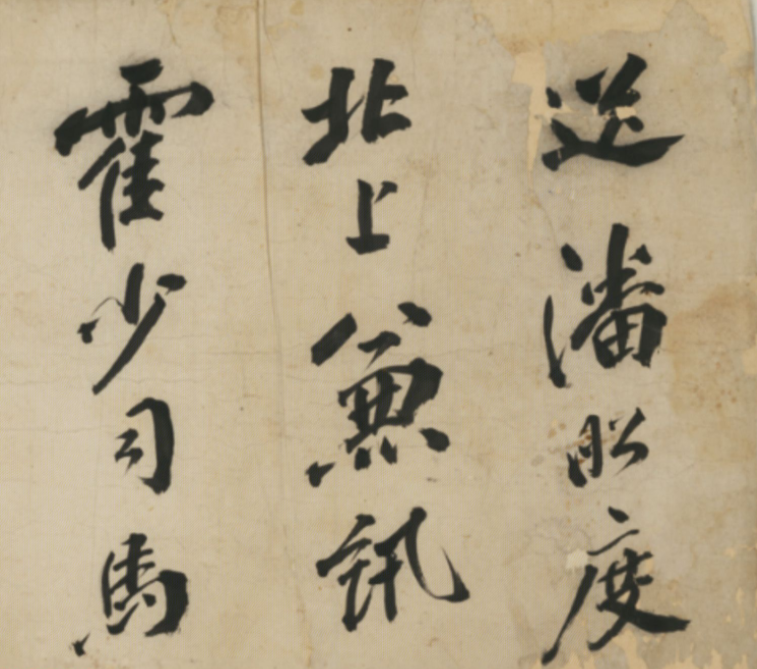 送潘昭度
北上兼訊
霍少司馬